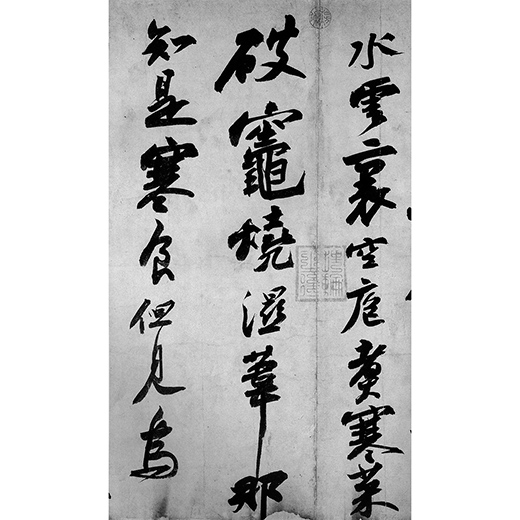 水雲裏空庖煮寒菜
破竈燒濕葦那
知是寒食但見烏